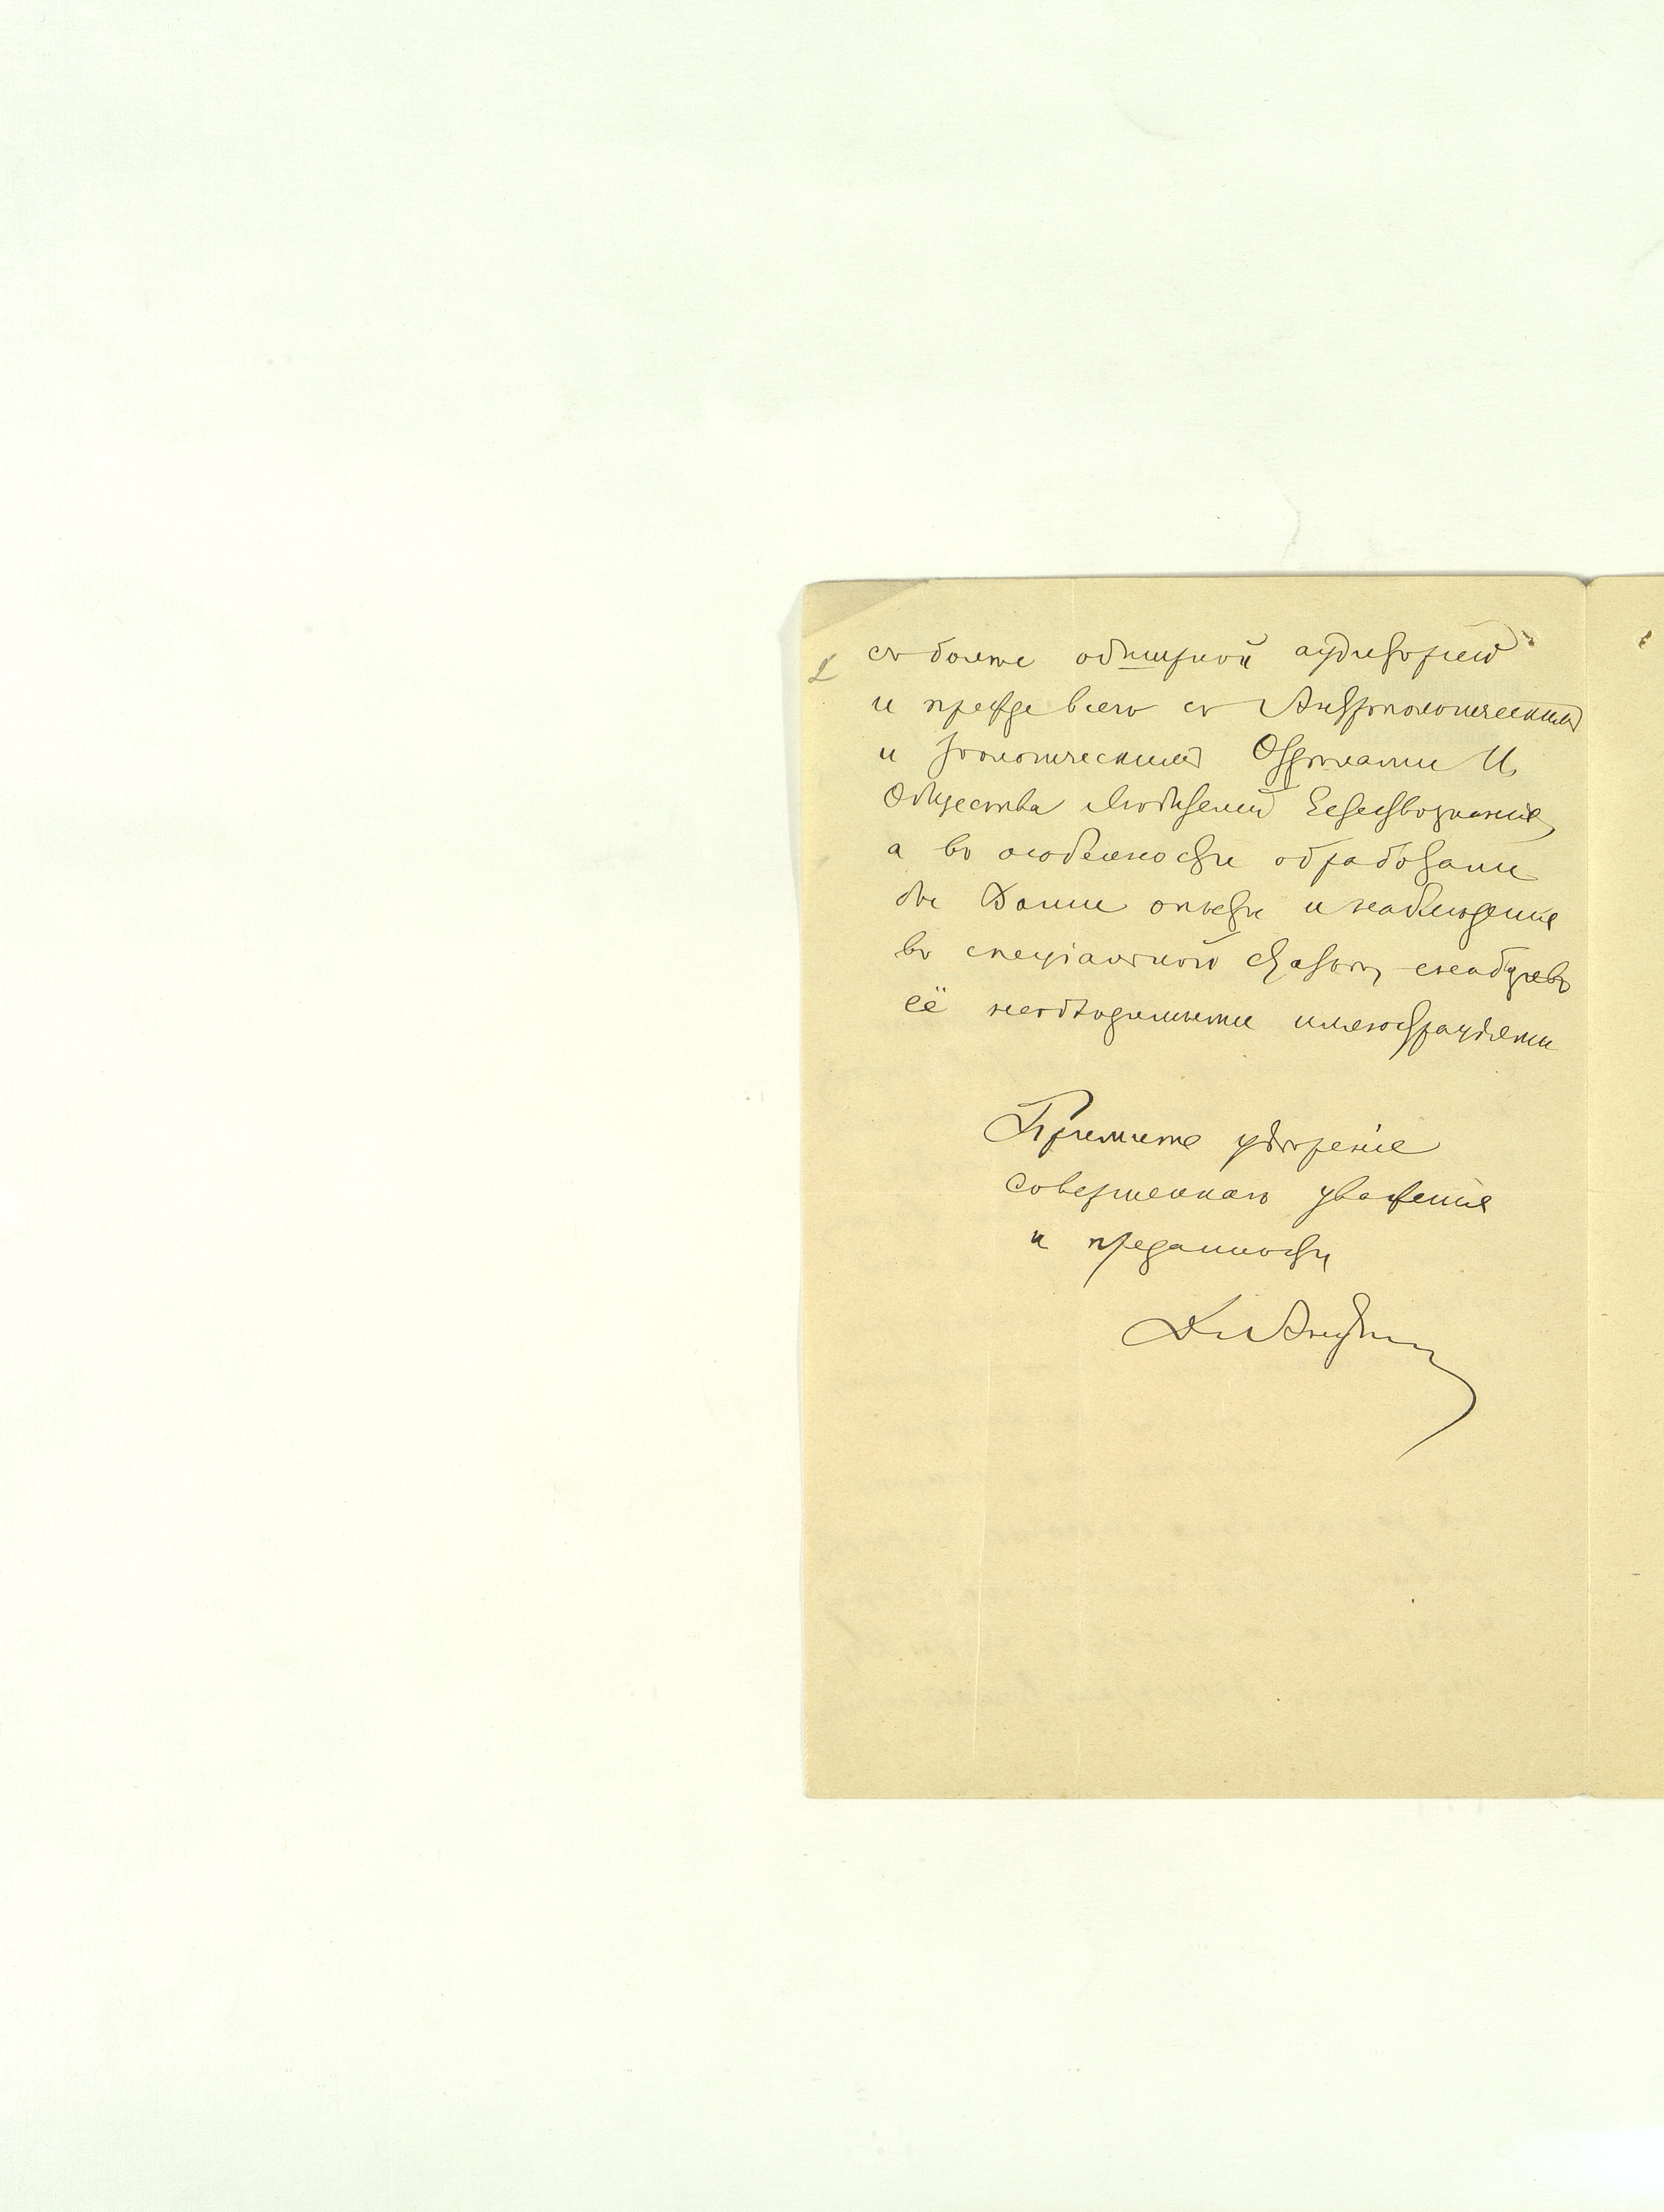 съ болѣе обширной аудиторіей
и прежде всего съ Антропологическимъ
и Зоологическимъ Отдѣлами И.
Общества Любителей Естествознанія,
а въ особенности обработали
бы Ваши опыты и наблюденія
въ спеціальной статьѣ, снабдивъ
её необходимыми иллюстраціями
Примите увѣреніе
совершеннаго уваженія
и преданности
Д. Анучин